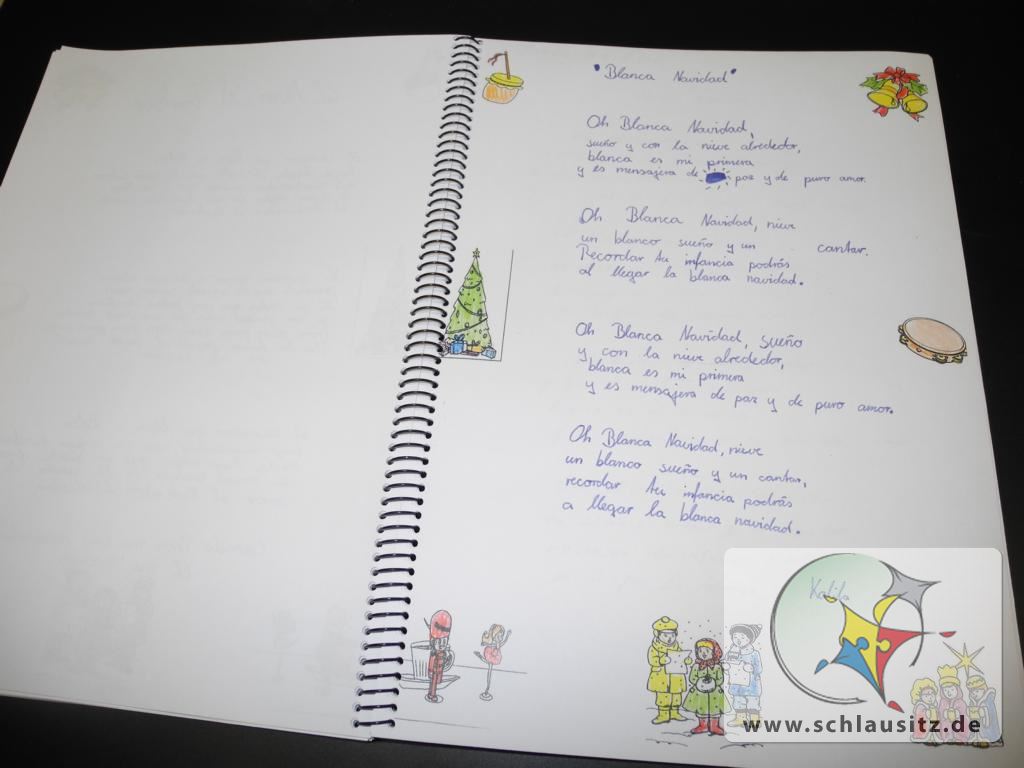 "Blanca Navidad"
Oh Blanca Navidad,
sueño y con la nieve alrededor,
blanca es mi primera
y es mensajera de paz y de puro amor.
Oh Blanca Navidad, nieve
un blanco sueño y un cantar.
Recordar tu infancia podrás
al llegar la blanca navidad.
Oh Blanca Navidad, sueño
y con la nieve alrededor,
blanca es mi primera
y es mensajera de paz y de puro amor.
Oh Blanca Navidad, nieve
un blanco sueño y un cantar,
recordar tu infancia podrás
a llegar la blanca navidad.
www.schlausitz.de